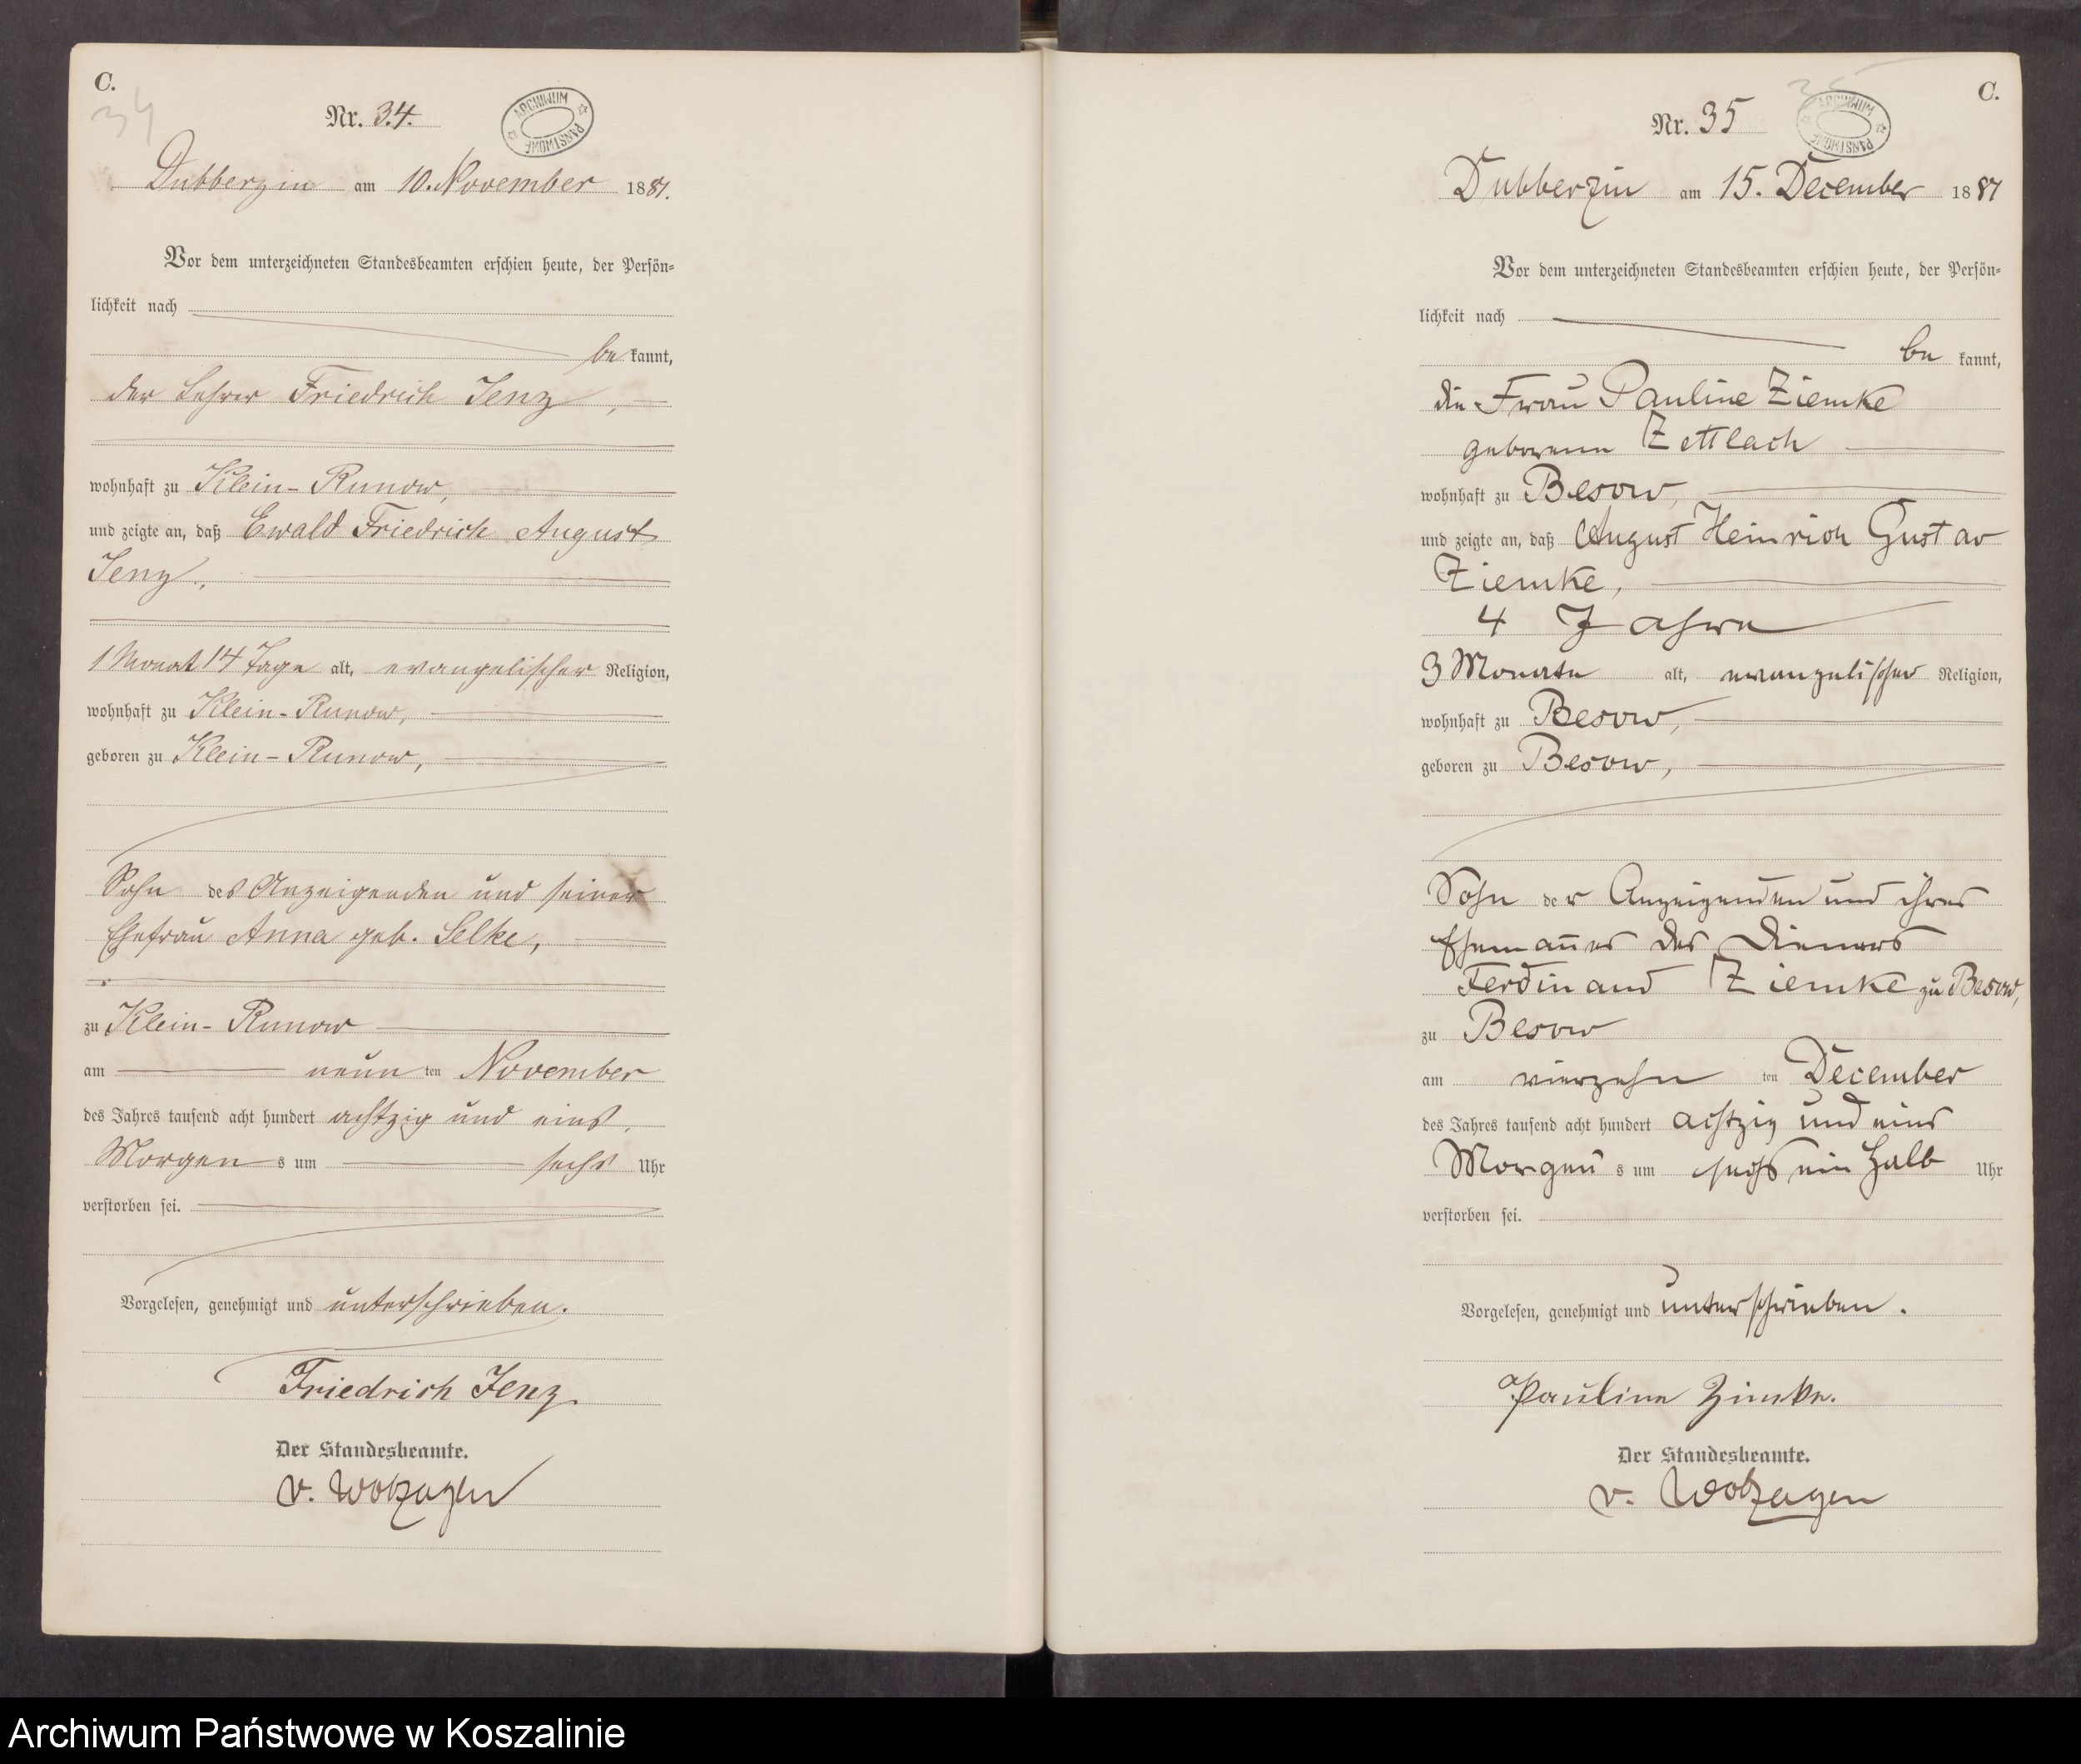 C.
34
Nr. 34.
ARCHIWUM PAŃSTWOWE
Dubberzin am 10. November 1881.
Vor dem unterzeichneten Standesbeamten erschien heute, der Persön-
lichkeit nach
be kannt,
der Lehrer Friedrich Jenz,
wohnhaft zu Klein-Runow,
und zeigte an, daß Ewald Friedrich August
Jenz,
1 Monat 14 Tage alt, evangelischer Religion,
wohnhaft zu Klein-Runow,
geboren zu Klein-Runow,
Sohn des Anzeigenden und seiner
Ehefrau Anna geb. Selke,
zu Klein-Runow
am neun ten November
des Jahres tausend acht hundert achtzig und eins,
Morgen s um sechs Uhr
verstorben sei.
Vorgelesen, genehmigt und unterschrieben.
Friedrich Jenz.
Der Standesbeamte.
v. Wolzogen
C.
35
Nr. 35
ARCHIWUM PAŃSTWOWE
Dubberzin am 15. December 1881
Vor dem unterzeichneten Standesbeamten erschien heute, der Persön-
lichkeit nach
be kannt,
die Frau Pauline Ziemke
geborene Zettlach
wohnhaft zu Besow,
und zeigte an, daß August Heinrich Gustav
Ziemke,
4 Jahre
3 Monate alt, evangelischer Religion,
wohnhaft zu Besow,
geboren zu Besow,
Sohn der Anzeigenden und ihres
Ehemannes des Dieners
Ferdinand Ziemke zu Besow,
zu Besow
am vierzehn ten December
des Jahres tausend acht hundert achtzig und eins
Morgen s um sechs ein halb Uhr
verstorben sei.
Vorgelesen, genehmigt und unterschrieben.
Pauline Zimke.
Der Standesbeamte.
v. Wolzogen
Archiwum Państwowe w Koszalinie